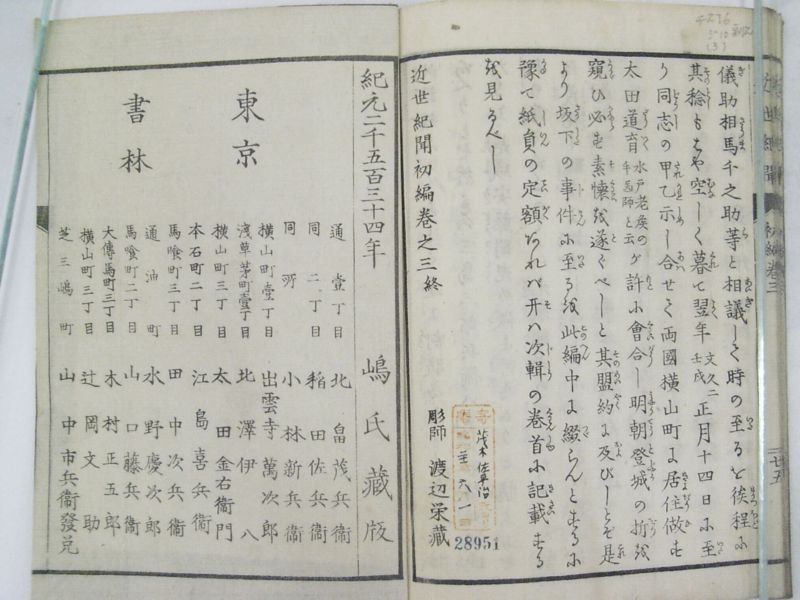 儀助相馬千之助等と相議して時の至るを俟程に
其稔もはや空しく暮て翌年文久二壬戌正月十四日に至
り同志の甲乙示し合せて両國横山町に居住做す
太田道育水戸老矦の手醫師と云ふが許に會合し明朝登城の折を
窺ひ必ず素懐を遂ぐべしと其盟約に及びしとぞ是
より坂下の事件に至るを此編中に綴らんとするに
豫て紙員の定額あれバ开ハ次輯の巻首に記載する
を見るべし
近世紀聞初編巻之三終
彫師 渡辺栄藏
28951
近世紀聞 初編巻三
紀元二千五百三十四年 嶋氏藏版
東京
書林
通壹丁目 北畠茂兵衞
同二丁目 稲田佐兵衞
同所 小林新兵衞
横山町壹丁目 出雲寺萬次郎
浅草茅町壹丁目 北澤伊八
横山町三丁目 太田金右衞門
本石町二丁目 江島喜兵衞
馬喰町三丁目 田中次兵衞
通油町 水野慶次郎
馬喰町二丁目 山口藤兵衞
大傳馬町三丁目 木村正五郎
横山町三丁目 辻岡文助
芝三嶋町 山中市兵衞發兌